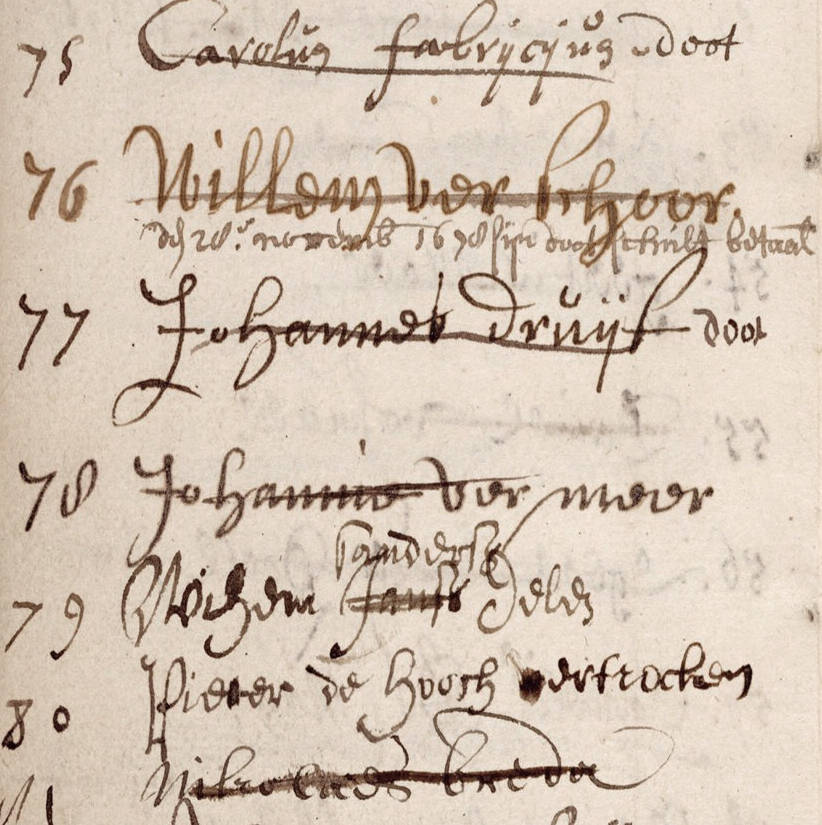 75 Carolus fabrycyus doot
76 Willem ver schoor.
den 28.e novemb 1678 sijn dootschult betaelt
77 Johannes druijf doot
78 Johannis ver meer
sanders
79 Wilhem Jansz Jelez
80 Pieter de hooch vertrocken
81 Nikolaes breda